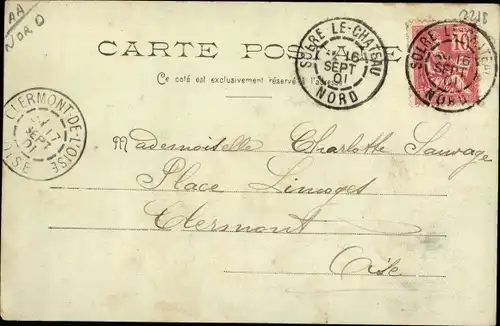 AA
NORD
2218
CARTE POSTALE
Ce coté est exclusivement réservé à l'adresse
SOLRE LE-CHATEAU
16
SEPT
01
NORD
SOLRE LE-CHATEAU
10
16
SEPT
NORD
CLERMONT-DE-L'OISE
17
SEPT
01
OISE
Mademoiselle Charlotte Sauvage
Place Limoges
Clermont
Oise